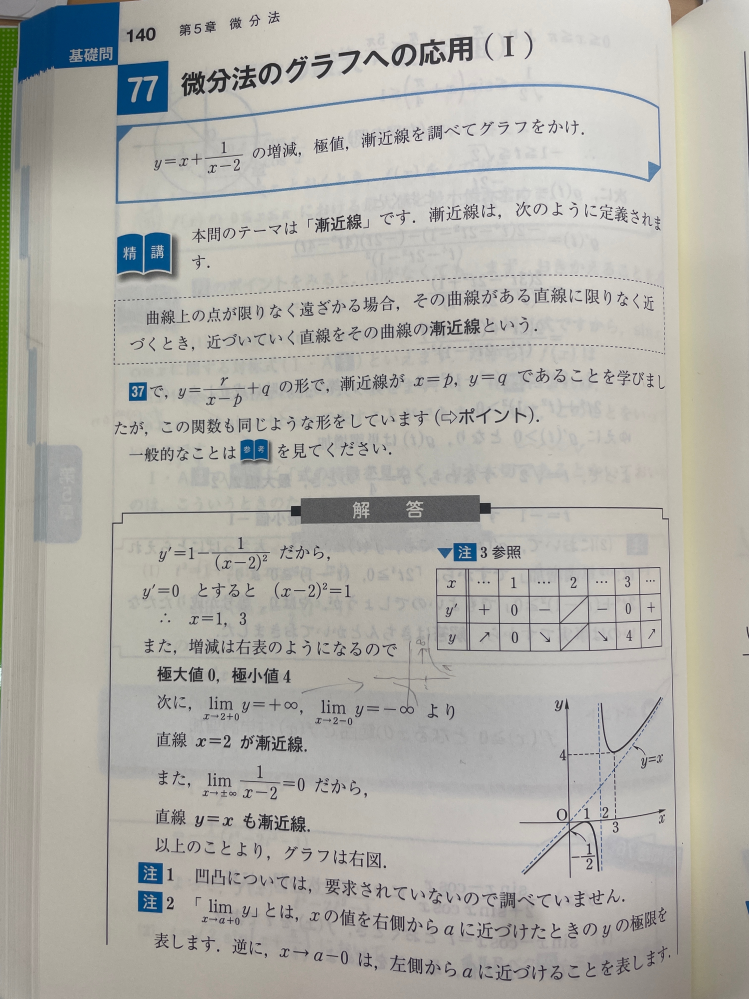 基礎問
140 第5章 微分法
77 微分法のグラフへの応用(Ⅰ)
y=x+1/(x-2) の増減，極値，漸近線を調べてグラフをかけ．
精講
本問のテーマは「漸近線」です．漸近線は，次のように定義されま
す．
曲線上の点が限りなく遠ざかる場合，その曲線がある直線に限りなく近
づくとき，近づいていく直線をその曲線の漸近線という．
37で，y=r/(x-p)+q の形で，漸近線が x=p, y=q であることを学びまし
たが，この関数も同じような形をしています(⇨ポイント)．
一般的なことは 参考 を見てください．
解 答
y′=1-1/(x-2)² だから，
y′=0 とすると (x-2)²=1
∴ x=1, 3
また，増減は右表のようになるので
極大値0，極小値4
▼注 3参照
x … 1 … 2 … 3 …
y′ + 0 − 0 +
y ↗ 0 ↘ ↘ 4 ↗
次に，lim[x→2+0] y=+∞, lim[x→2-0] y=-∞ より
直線 x=2 が漸近線．
また，lim[x→±∞] 1/(x-2)=0 だから，
直線 y=x も漸近線．
以上のことより，グラフは右図．
y
4
y=x
O 1 2 x
3
-1/2
注1 凹凸については，要求されていないので調べていません．
注2 「lim[x→a+0] y」とは，xの値を右側からaに近づけたときのyの極限を
表します．逆に，x→a-0 は，左側からaに近づけることを表します．